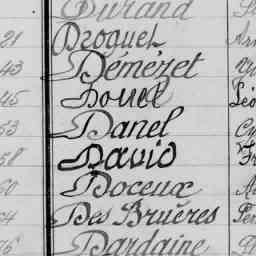 Durand
21 Droguet Ar
43 Démézet
45 Douel Léo
53 Danel
58 David Fr
60 Doceux A
64 Des Bruères Fer
76 Dardaine